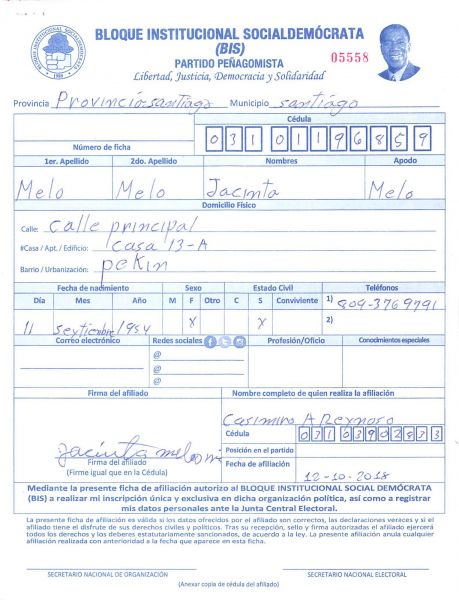 BLOQUE INSTITUCIONAL SOCIALDEMÓCRATA
(BIS)
PARTIDO PEÑAGOMISTA
05558
Libertad, Justicia, Democracia y Solidaridad
Provincia Provincia santiago Municipio santiago
Cédula
Número de ficha 03101196859
1er. Apellido 2do. Apellido Nombres Apodo
Melo Melo Jacinta Melo
Domicilio Físico
Calle: calle principal
#Casa / Apt. / Edificio: casa 13-A
Barrio / Urbanización: pekin
Fecha de nacimiento Sexo Estado Civil Teléfonos
Día Mes Año M F Otro C S Conviviente 1) 809-3769791
11 Septiembre 1954 X X 2)
Correo electrónico Redes sociales Profesión/Oficio Conocimientos especiales
@
@
@
Firma del afiliado Nombre completo de quien realiza la afiliación
Casimiro A Reynoso
Cédula 03103902873
jacinta melo
Posición en el partido
Firma del afiliado
(Firme igual que en la Cédula)
Fecha de afiliación
12-10-2018
Mediante la presente ficha de afiliación autorizo al BLOQUE INSTITUCIONAL SOCIAL DEMÓCRATA
(BIS) a realizar mi inscripción única y exclusiva en dicha organización política, así como a registrar
mis datos personales ante la Junta Central Electoral.
La presente ficha de afiliación es válida si los datos ofrecidos por el afiliado son correctos, las declaraciones veraces y si el
afiliado tiene el disfrute de sus derechos civiles y políticos. Tras su recepción, sello y firma autorizados el afiliado ejercerá
todos los derechos y los deberes estatutariamente sancionados, de acuerdo a la ley. La presente afiliación anula cualquier
afiliación realizada con anterioridad a la fecha que aparece en esta ficha.
SECRETARIO NACIONAL DE ORGANIZACIÓN SECRETARIO NACIONAL ELECTORAL
(Anexar copia de cédula del afiliado)